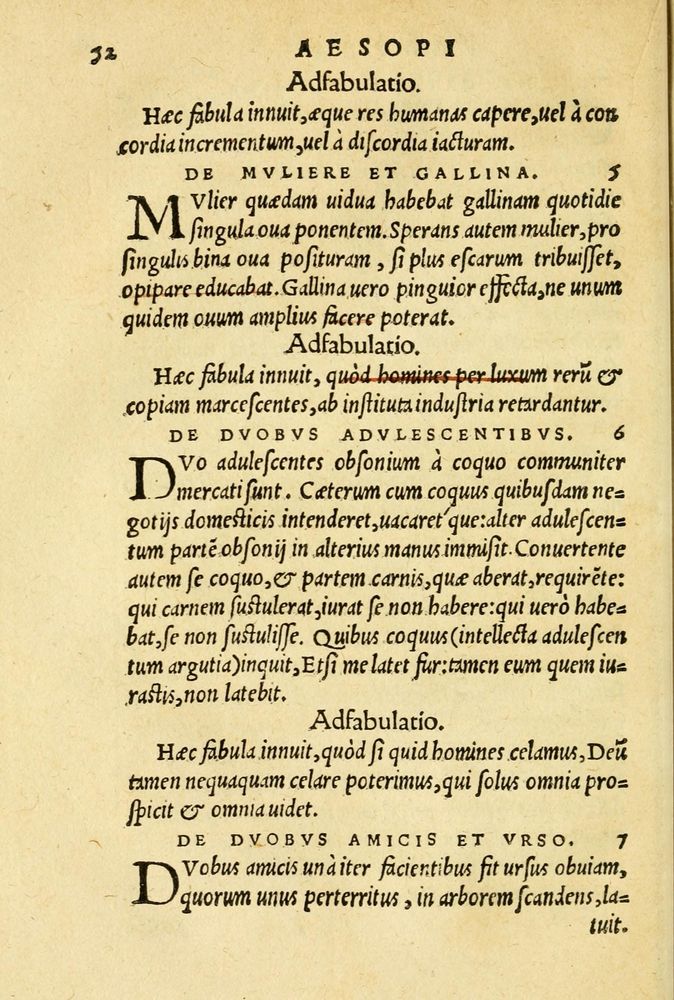 32 AESOPI
Adfabulatio.
Hæc fabula innuit, æque res humanas capere, uel à con
cordia incrementum, uel à discordia iacturam.
DE MVLIERE ET GALLINA. 5
MVlier quædam uidua habebat gallinam quotidie
singula oua ponentem. Sperans autem mulier, pro
singulis bina oua posituram, si plus escarum tribuisset,
opipare educabat. Gallina uero pinguior effecta, ne unum
quidem ouum amplius facere poterat.
Adfabulatio.
Hæc fabula innuit, quòd homines per luxum rerũ &
copiam marcescentes, ab instituta industria retardantur.
DE DVOBVS ADVLESCENTIBVS. 6
DVo adulescentes obsonium à coquo communiter
mercati sunt. Cæterum cum coquus quibusdam ne=
gotijs domesticis intenderet, uacaret´que: alter adulescen=
tum partẽ obsonij in alterius manus immisit. Conuertente
autem se coquo, & partem carnis, quæ aberat, requirẽte:
qui carnem sustulerat, iurat se non habere: qui uerò habe=
bat, se non sustulisse. Quibus coquus (intellecta adulescen
tum argutia) inquit, Etsi me latet fur: tamen eum quem iu=
rastis, non latebit.
Adfabulatio.
Hæc fabula innuit, quòd si quid homines celamus, Deũ
tamen nequaquam celare poterimus, qui solus omnia pro=
spicit & omnia uidet.
DE DVOBVS AMICIS ET VRSO. 7
DVobus amicis unà iter facientibus fit ursus obuiam,
quorum unus perterritus, in arborem scandens, la=
tuit.